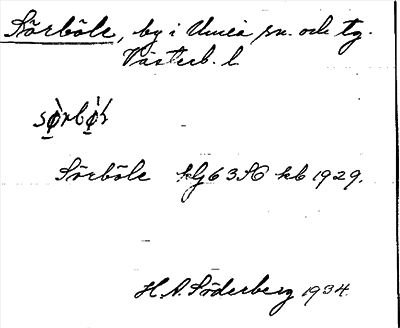 Sörböle, by i Umeå sn. och tg.
Västerb. l.
Sörböle kG63SO kb 1929.
H. A. Söderberg 1934.